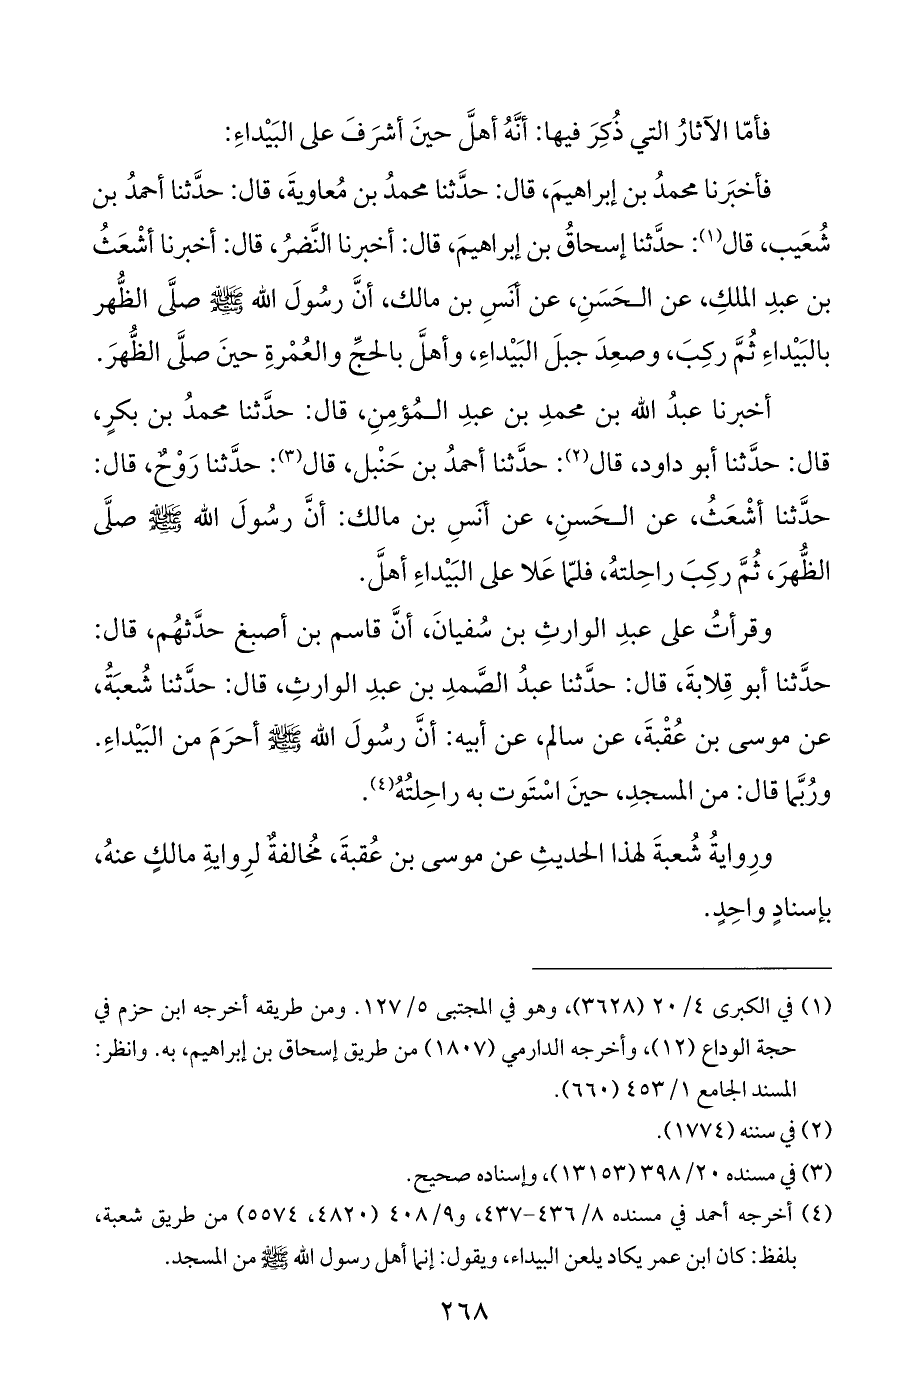 فأمّا الآثارُ التي ذُكِرَ فيها: أنَّهُ أهلَّ حينَ أشرَفَ على البَيْداءِ:
فأخبَرنا محمدُ بن إبراهيمَ، قال: حدَّثنا محمدُ بن مُعاويةَ، قال: حدَّثنا أحمدُ بن
شُعَيب، قال(١): حدَّثنا إسحاقُ بن إبراهيمَ، قال: أخبرنا النَّضرُ، قال: أخبرنا أشْعَثُ
بن عبدِ الملكِ، عن الـحَسَنِ، عن أنَسِ بن مالك، أنَّ رسُولَ الله ﷺ صلَّى الظُّهر
بالبَيْداءِ ثُمَّ ركِبَ، وصعِدَ جبلَ البَيْداءِ، وأهلَّ بالحجِّ والعُمْرةِ حينَ صلَّى الظُّهرَ.
أخبرنا عبدُ الله بن محمدِ بن عبدِ الـمُؤمِنِ، قال: حدَّثنا محمدُ بن بكرٍ،
قال: حدَّثنا أبو داود، قال(٢): حدَّثنا أحمدُ بن حَنْبل، قال(٣): حدَّثنا رَوْحٌ، قال:
حدَّثنا أشْعَثُ، عن الـحَسنِ، عن أنَسِ بن مالك: أنَّ رسُولَ الله ﷺ صلَّى
الظُّهرَ، ثُمَّ ركِبَ راحِلتهُ، فلمّا عَلا على البَيْداءِ أهلَّ.
وقرأتُ على عبدِ الوارثِ بن سُفيانَ، أنَّ قاسم بن أصبغ حدَّثهُم، قال:
حدَّثنا أبو قِلابةَ، قال: حدَّثنا عبدُ الصَّمدِ بن عبدِ الوارثِ، قال: حدَّثنا شُعبَةُ،
عن موسى بن عُقْبةَ، عن سالم، عن أبيه: أنَّ رسُولَ الله ﷺ أحرَمَ من البَيْداءِ.
ورُبَّما قال: من المسجدِ، حينَ اسْتَوت به راحِلتُهُ(٤).
ورِوايةُ شُعبةَ لهذا الحديثِ عن موسى بن عُقبةَ، مُخالفةٌ لرِوايةِ مالكٍ عنهُ،
بإسنادٍ واحِدٍ.
(١) في الكبرى ٤/ ٢٠ (٣٦٢٨)، وهو في المجتبى ٥/ ١٢٧. ومن طريقه أخرجه ابن حزم في
حجة الوداع (١٢)، وأخرجه الدارمي (١٨٠٧) من طريق إسحاق بن إبراهيم، به. وانظر:
المسند الجامع ١/ ٤٥٣ (٦٦٠).
(٢) في سننه (١٧٧٤).
(٣) في مسنده ٢٠/ ٣٩٨ (١٣١٥٣)، وإسناده صحيح.
(٤) أخرجه أحمد في مسنده ٨/ ٤٣٦-٤٣٧، و٩/ ٤٠٨ (٤٨٢٠، ٥٥٧٤) من طريق شعبة،
بلفظ: كان ابن عمر يكاد يلعن البيداء، ويقول: إنما أهل رسول الله ﷺ من المسجد.
٢٦٨